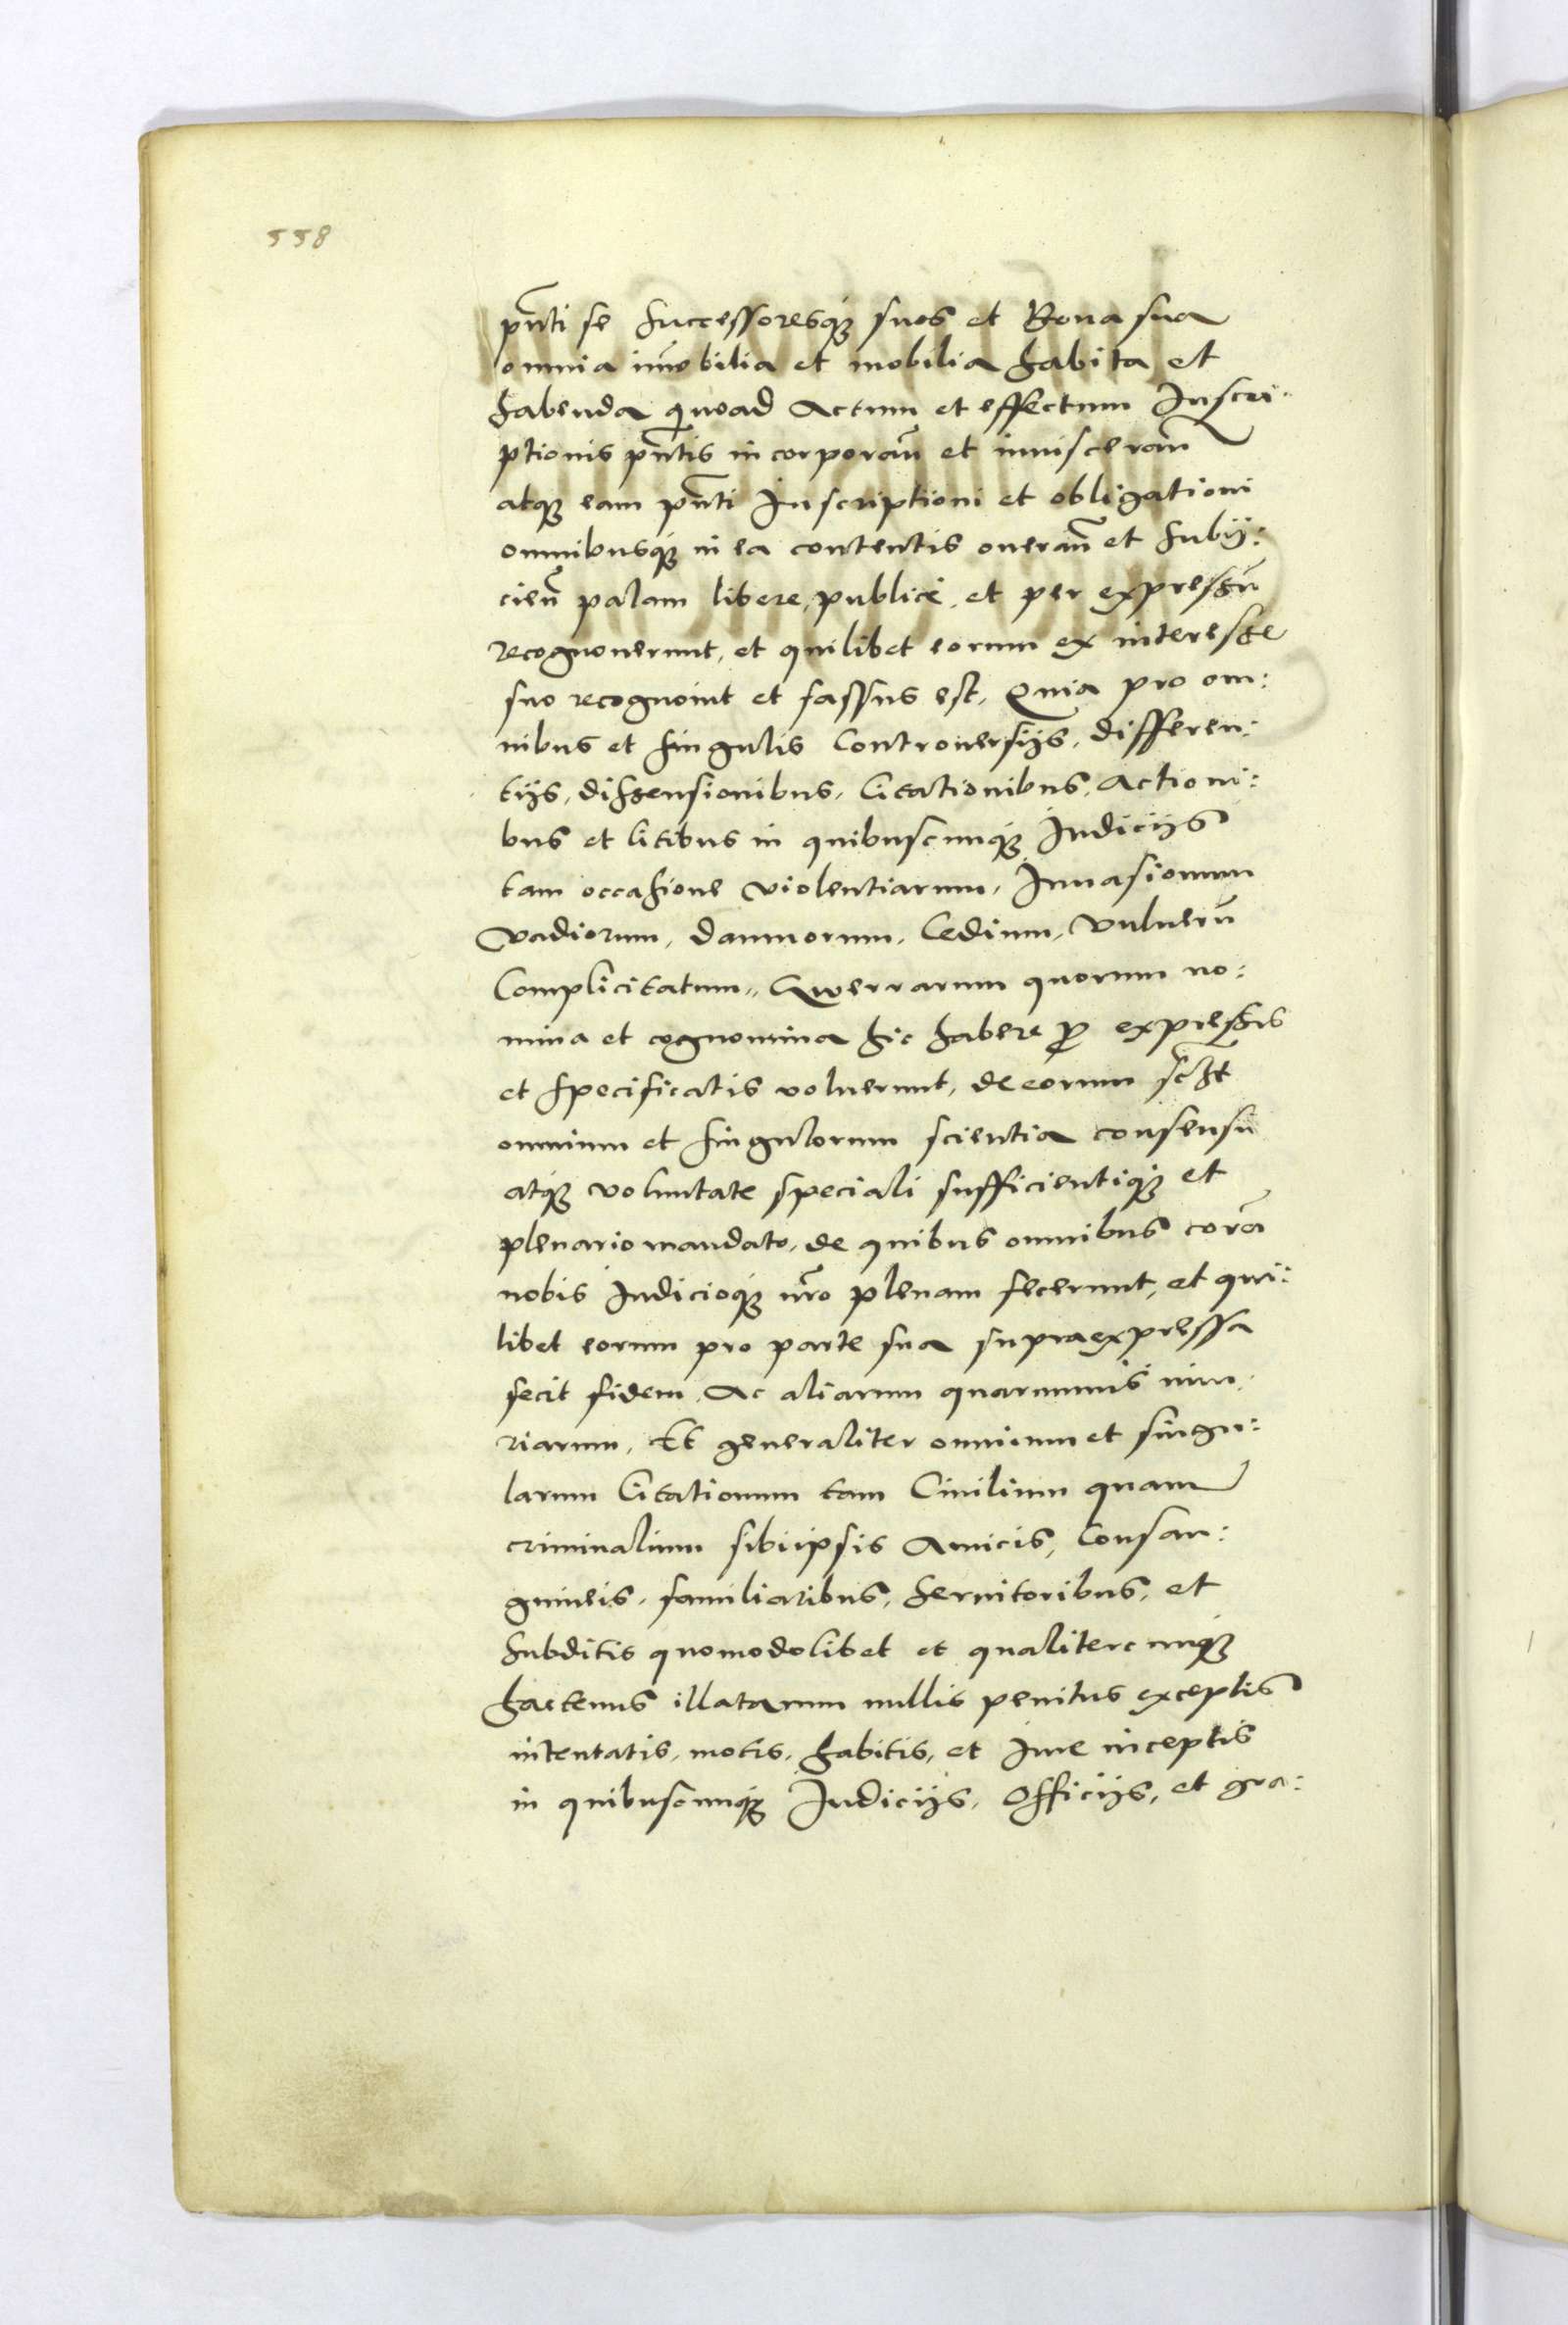 558
pñti se successoresq̃ suos et Bona sua
omnia im̃obilia et mobilia habita et
habenda quoad Actum et effectum Inscri:
ptionis pñtis incorporan̄ et inuisceran̄
atq̃ eam pñti Inscriptioni et obligationi
omnibusq̃ in ea contentis oneran̄ et subij:
cien̄ palam libere, publice, et per expressū
recognouerunt, et quilibet eorum ex interesse
suo recognouit et fassus est, Quia pro om:
nibus et singulis Controuersijs, differen:
tijs, dissensionibus, Citationibus, Actioni:
bus et litibus in quibuscunq̃ Iudicijs
tam occasione violentiarum, Inuasionum
Vadiorum, damnorum, Cedium, Vulnerū
Complicitatum, Gwerrarum quorum no:
mina et cognomina hic habere p expressis
et specificatis voluerunt, de eorum
omnium et singulorum scientia consensu
atq̃ voluntate speciali sufficientiq̃ et
plenario mandato, de quibus omnibus corā
nobis Iudicioq̃ nr̃o plenam fecerunt, et qui:
libet eorum pro parte sua supraexpressa
fecit fidem. Ac aliarum quarumuis iniu:
riarum, Et generaliter omnium et singu:
larum Citationum tam Ciuilium quam
criminalium sibiipsis Amicis, Consan:
guineis, familiaribus, seruitoribus, et
subditis quomodolibet et qualitercunq̃
hactenus illatarum nullis penitus exceptis
intentatis, motis, habitis, et Iure inceptis
in quibuscunq̃ Iudicijs, Officijs, et gra: